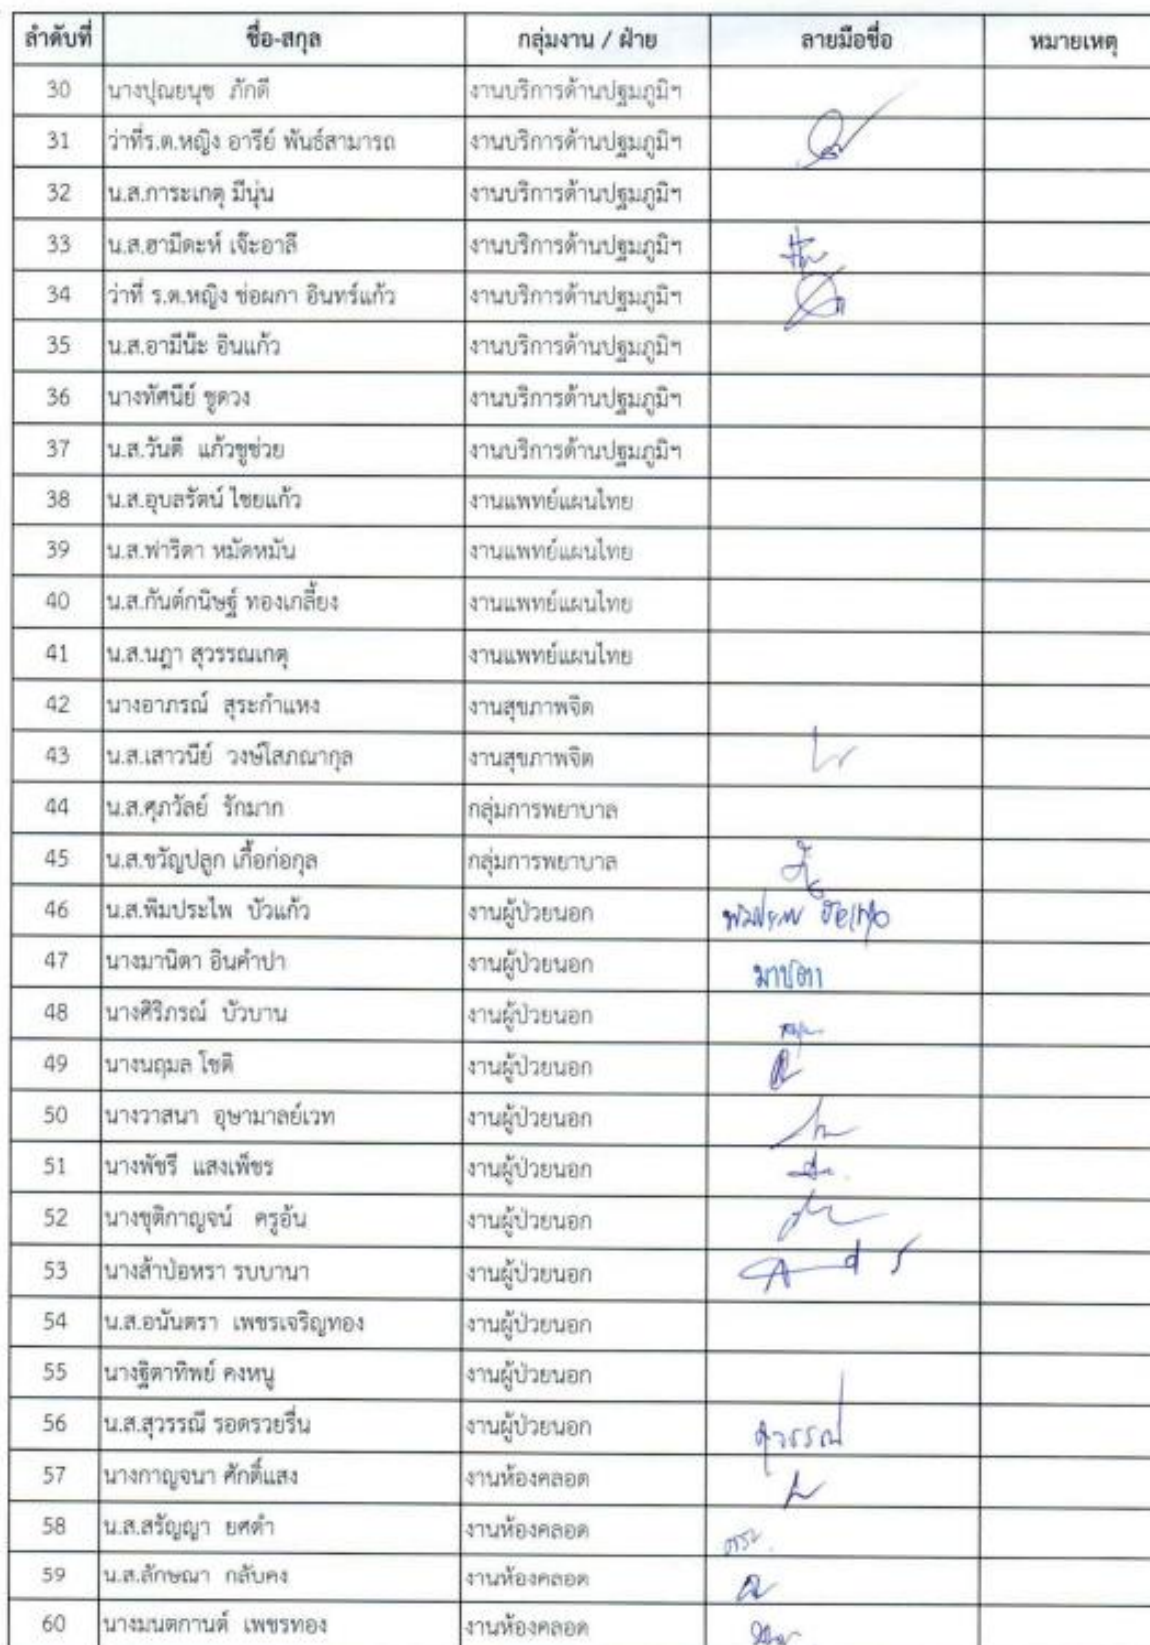 ลำดับที่ ชื่อ-สกุล กลุ่มงาน / ฝ่าย ลายมือชื่อ หมายเหตุ
30 นางปุณยนุช ภักดี งานบริการด้านปฐมภูมิฯ
31 ว่าที่ร.ต.หญิง อารีย์ พันธ์สามารถ งานบริการด้านปฐมภูมิฯ
32 น.ส.การะเกตุ มีนุ่น งานบริการด้านปฐมภูมิฯ
33 น.ส.ฮามีดะห์ เจ๊ะอาลี งานบริการด้านปฐมภูมิฯ
34 ว่าที่ ร.ต.หญิง ช่อผกา อินทร์แก้ว งานบริการด้านปฐมภูมิฯ
35 น.ส.อามีน๊ะ อินแก้ว งานบริการด้านปฐมภูมิฯ
36 นางทัศนีย์ ชูดวง งานบริการด้านปฐมภูมิฯ
37 น.ส.วันดี แก้วชูช่วย งานบริการด้านปฐมภูมิฯ
38 น.ส.อุบลรัตน์ ไชยแก้ว งานแพทย์แผนไทย
39 น.ส.ฟาริดา หมัดหมัน งานแพทย์แผนไทย
40 น.ส.กันต์กนิษฐ์ ทองเกลี้ยง งานแพทย์แผนไทย
41 น.ส.นฎา สุวรรณเกตุ งานแพทย์แผนไทย
42 นางอาภรณ์ สุระกำแหง งานสุขภาพจิต
43 น.ส.เสาวนีย์ วงษ์โสภณากุล งานสุขภาพจิต
44 น.ส.ศุภวัลย์ รักมาก กลุ่มการพยาบาล
45 น.ส.ขวัญปลูก เกื้อก่อกุล กลุ่มการพยาบาล
46 น.ส.พิมประไพ บัวแก้ว งานผู้ป่วยนอก
47 นางมานิตา อินคำปา งานผู้ป่วยนอก มานิตา
48 นางศิริภรณ์ บัวบาน งานผู้ป่วยนอก
49 นางนฤมล โชติ งานผู้ป่วยนอก
50 นางวาสนา อุษามาลย์เวท งานผู้ป่วยนอก
51 นางพัชรี แสงเพ็ชร งานผู้ป่วยนอก
52 นางชุติกาญจน์ ครูอ้น งานผู้ป่วยนอก
53 นางส้าปอหรา รบบานา งานผู้ป่วยนอก
54 น.ส.อนันตรา เพชรเจริญทอง งานผู้ป่วยนอก
55 นางฐิตาทิพย์ คงหนู งานผู้ป่วยนอก
56 น.ส.สุวรรณี รอดรวยรื่น งานผู้ป่วยนอก สุวรรณี
57 นางกาญจนา ศักดิ์แสง งานห้องคลอด
58 น.ส.สรัญญา ยศดำ งานห้องคลอด
59 น.ส.ลักษณา กลับคง งานห้องคลอด
60 นางมนตกานต์ เพชรทอง งานห้องคลอด